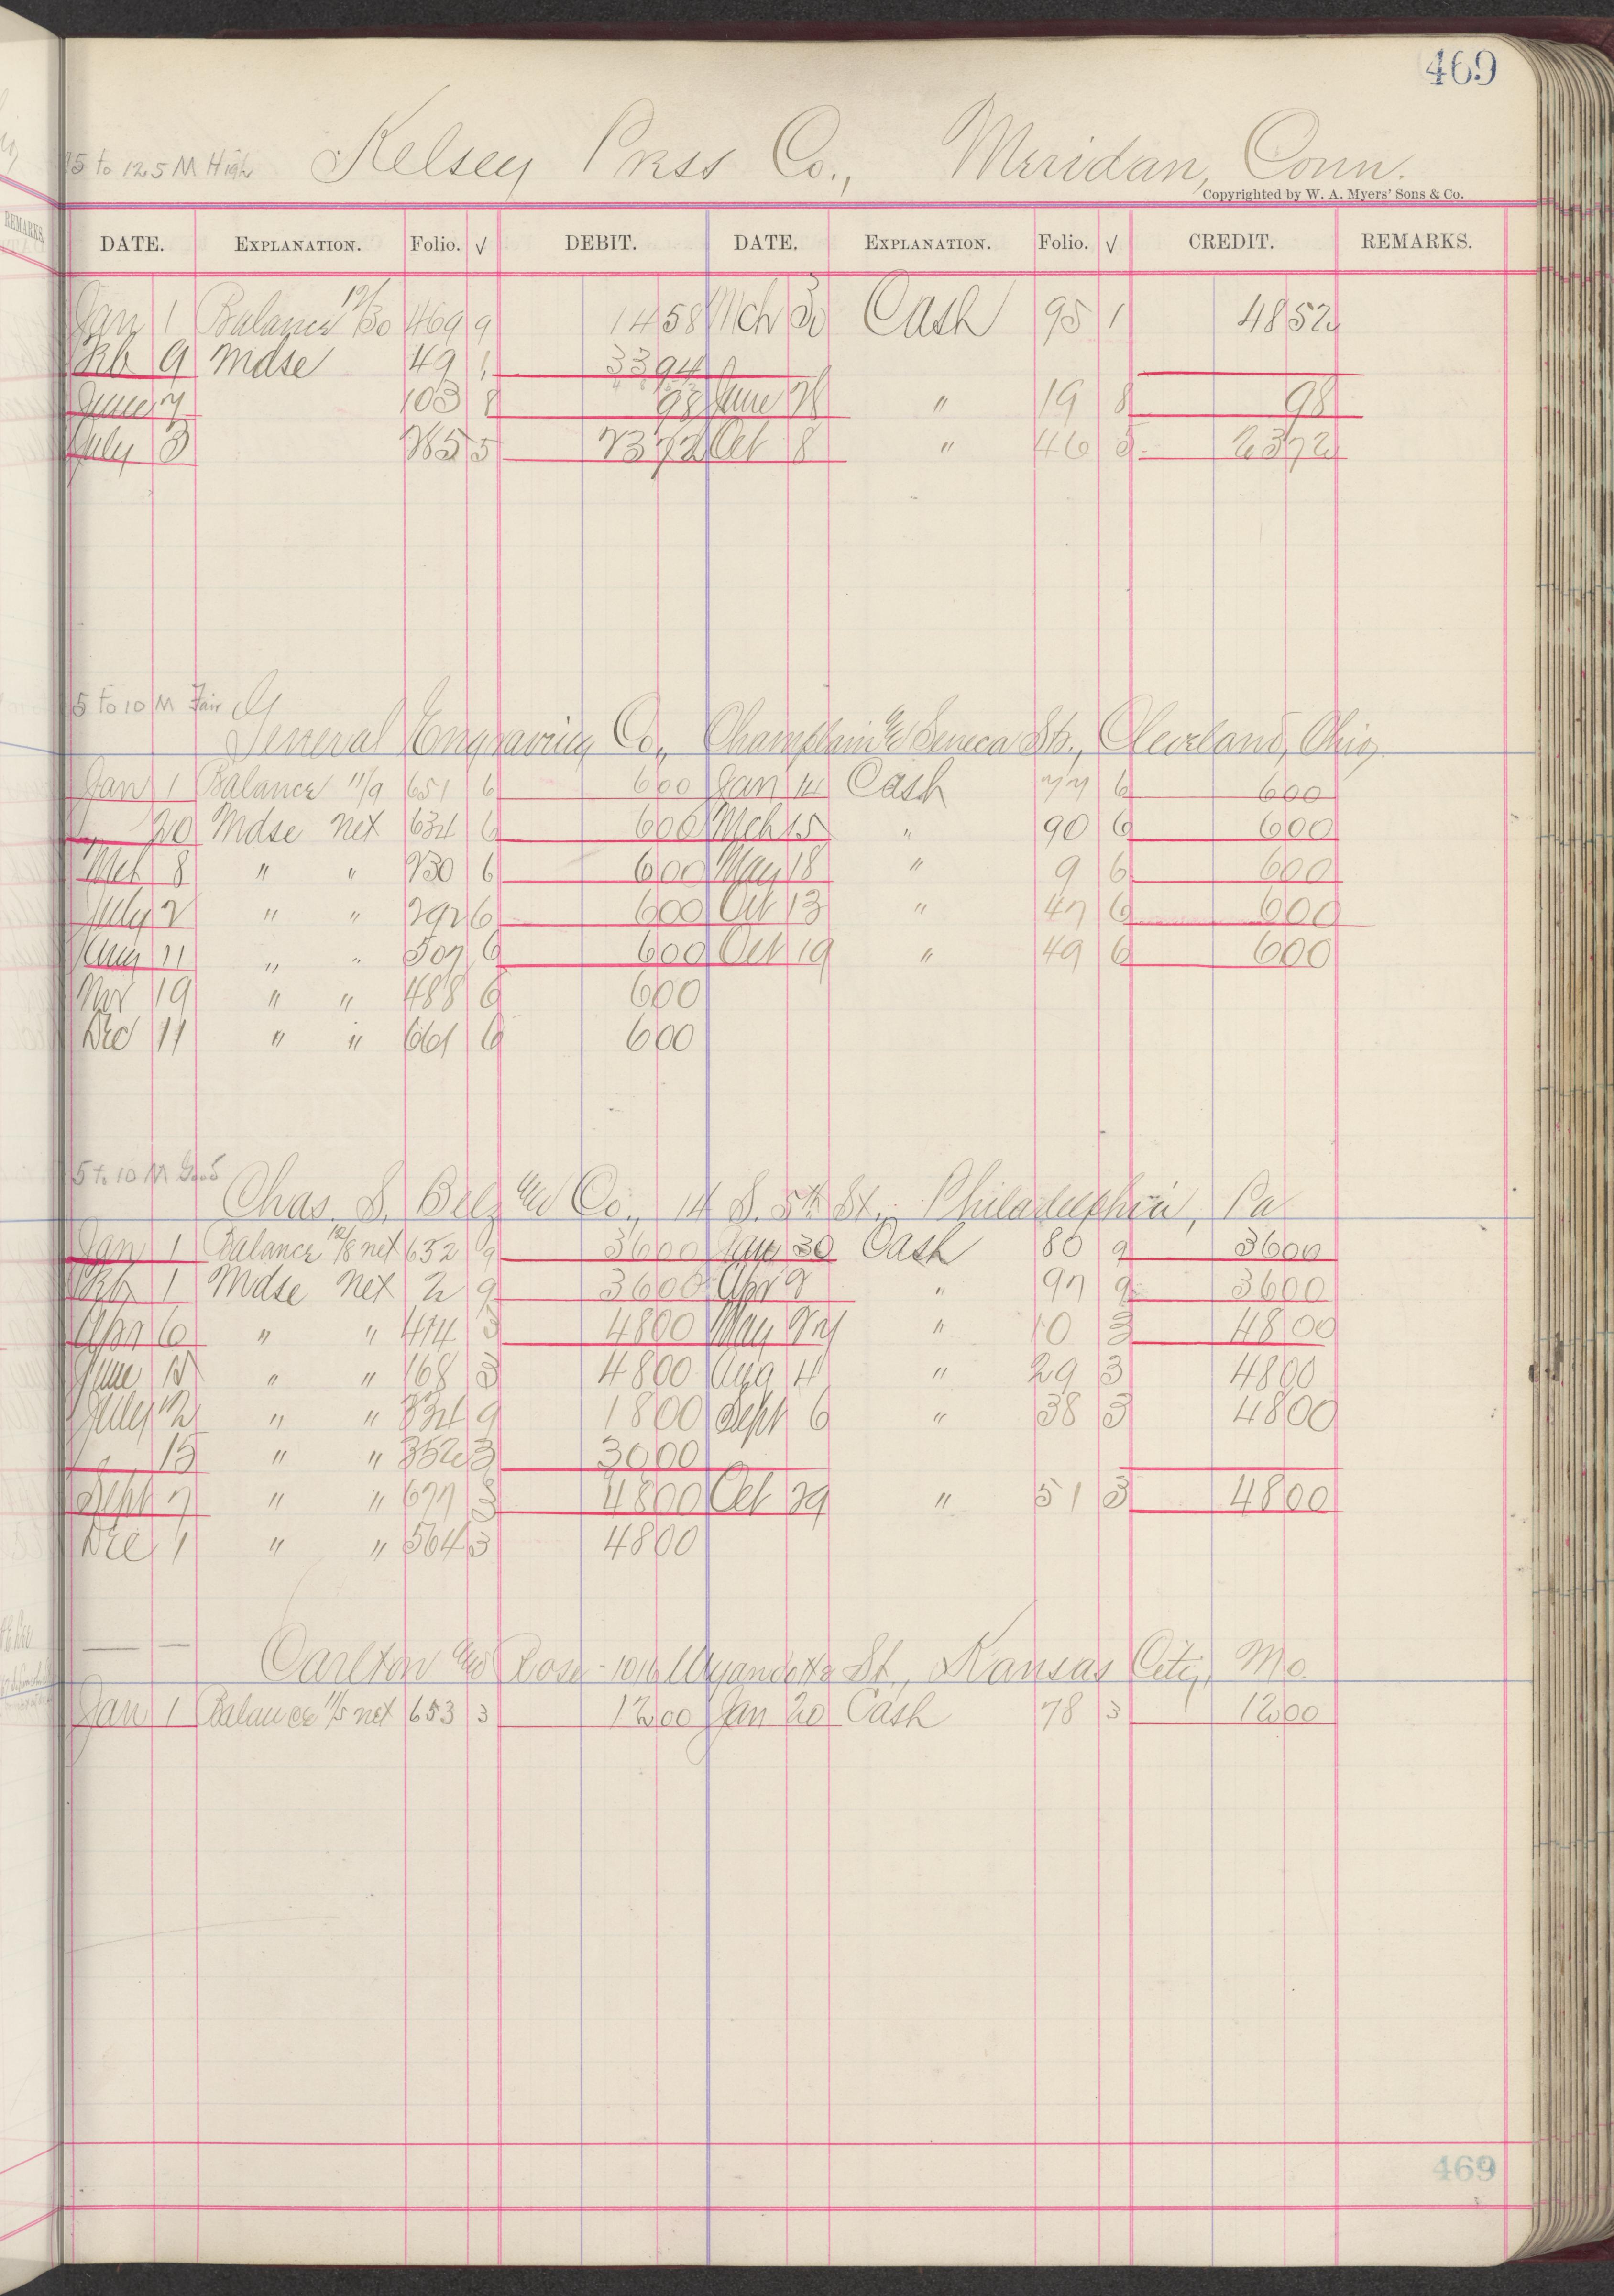 469
75 to 125 M High Kelsey Press Co., Meridan, Conn.
Copyrighted by W. A. Myers' Sons & Co.
REMARKS
DATE. EXPLANATION. Folio. √ DEBIT. DATE. EXPLANATION. Folio. √ CREDIT. REMARKS.
Jan 1 Balance 12/30 469 9 1458 Mch 30 Cash 95 1 4852
Feb 9 Mdse 49 1 3394
June 7 103 8 98 June 28 " 19 8 98
July 3 285 5 2372 Oct 8 " 46 5 2372
5 to 10 M Fair
General Engraving Co., Champlain & Seneca Sts., Cleveland, Ohio.
Jan 1 Balance 11/9 651 6 600 Jan 14 Cash 77 6 600
" 20 Mdse net 634 6 600 Mch 15 " 90 6 600
Mch 8 " " 230 6 600 May 18 " 9 6 600
July 2 " " 292 6 600 Oct 13 " 47 6 600
Aug 11 " " 507 6 600 Oct 19 " 49 6 600
Nov 19 " " 488 6 600
Dec 11 " " 661 6 600
5 to 10 M Good
Chas. S. Belz and Co., 14 S. 5th St., Philadelphia, Pa
Jan 1 Balance 12/8 net 652 9 3600 Jan 30 Cash 80 9 3600
Feb 1 Mdse net 2 9 3600 Apr 2 " 97 9 3600
Apr 6 " " 414 3 4800 May 24 " 10 3 4800
June 15 " " 168 3 4800 Aug 4 " 29 3 4800
July 12 " " 334 9 1800 Sept 6 " 38 3 4800
" 15 " " 352 3 3000
Sept 7 " " 677 3 4800 Oct 29 " 51 3 4800
Dec 1 " " 564 3 4800
Carlton and Rose - 1016 Wyandotte St., Kansas City, Mo.
Jan 1 Balance 11/5 net 653 3 1200 Jan 20 Cash 78 3 1200
469